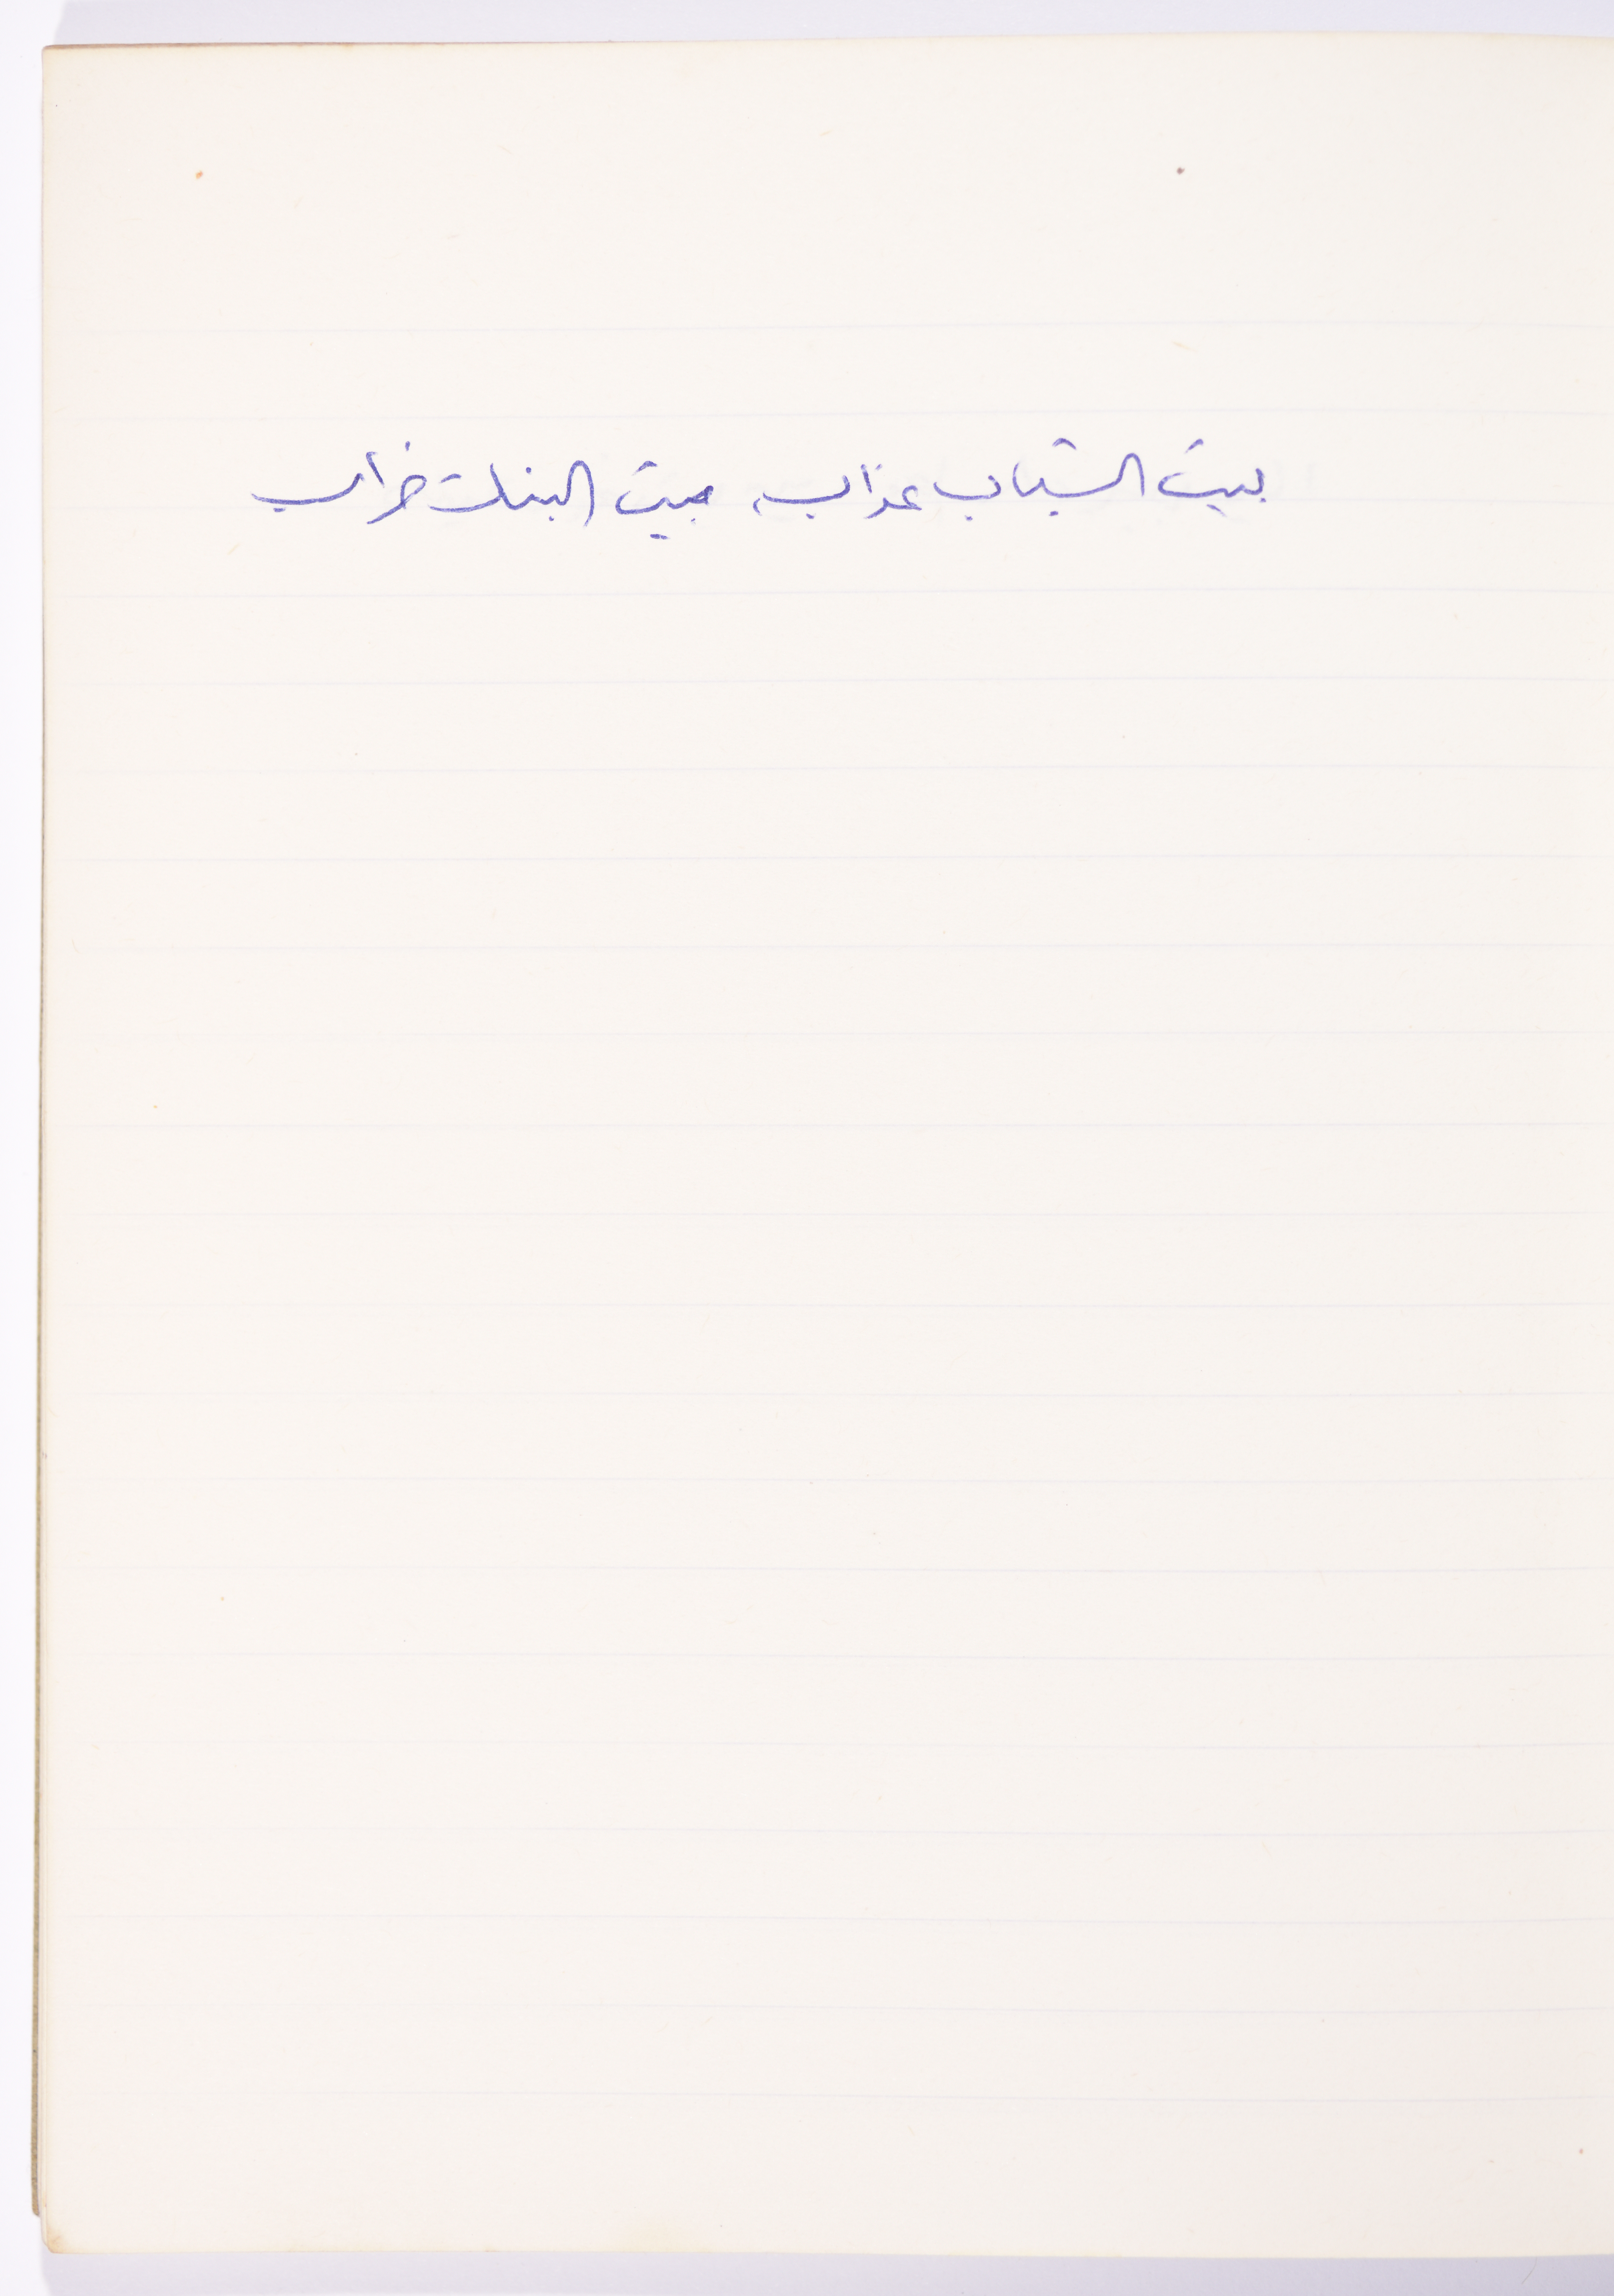 بيت الشباب عذاب، وبيت البنات خراب